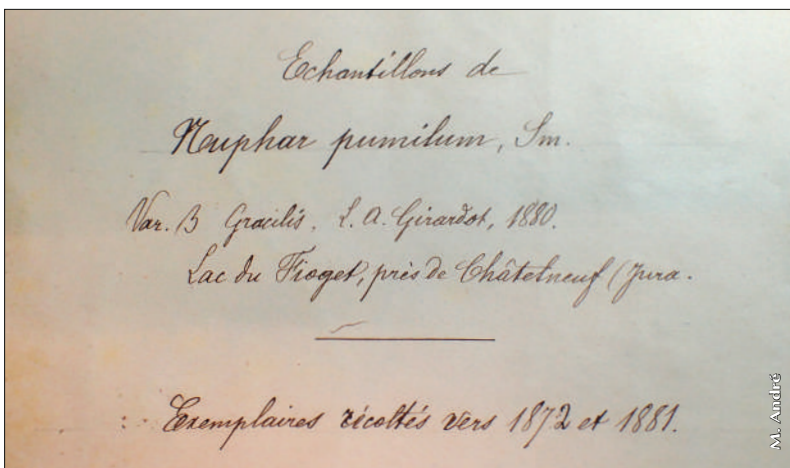 Echantillons de
Nuphar pumilum, Sm.
Var. B Gracilis, L. A. Girardot, 1880.
Lac du Fioget, près de Châtelneuf (Jura.
Exemplaires récoltés vers 1872 et 1881.
M. André